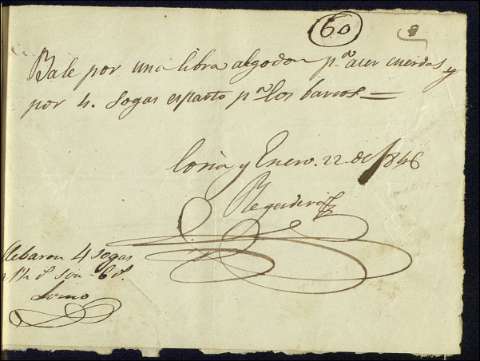 60
Bale por una libra algodon p.ª acer cuerdas y
por 4. sogas esparto p.ª los barcos =
Coria y Enero. 22 de 1846
Regidera
llebaron 4 sogas
son 6 d.
Lomo